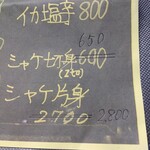 イカ塩辛800
650
シャケ切身600
(2切)
シャケ片身
2700 2,800